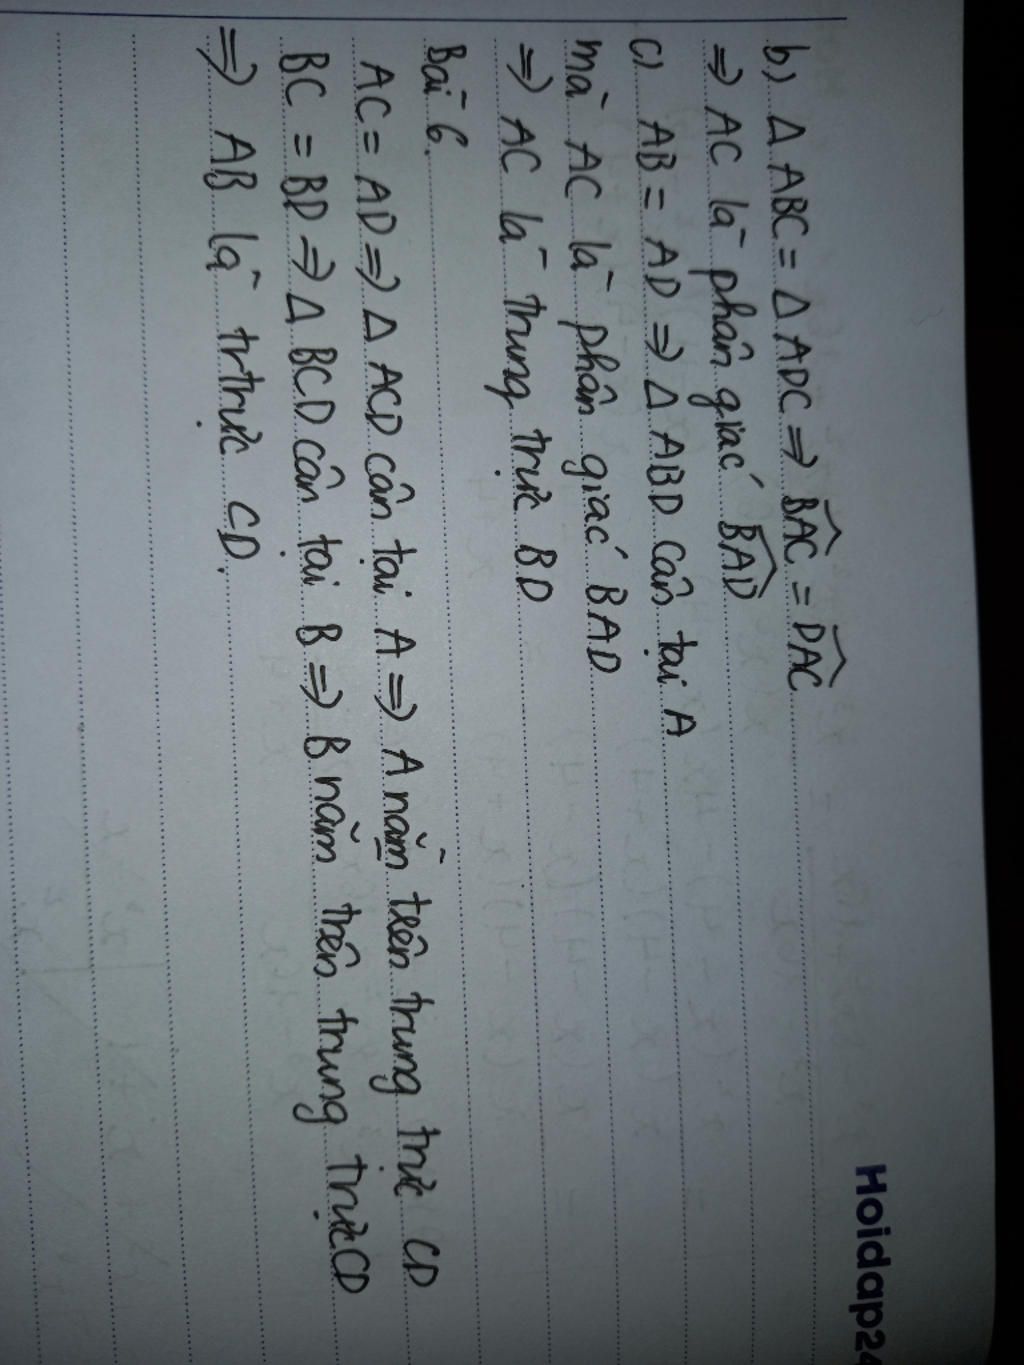 Hoidap24
b) Δ ABC = Δ ADC ⇒ \widehat{BAC} = \widehat{DAC}
⇒ AC là phân giác \widehat{BAD}
c) AB = AD ⇒ Δ ABD cân tại A
mà AC là phân giác BAD
⇒ AC là trung trực BD
Bài 6.
AC = AD ⇒ Δ ACD cân tại A ⇒ A nằm trên trung trực CD
BC = BD ⇒ Δ BCD cân tại B ⇒ B nằm trên trung trực CD
⇒ AB là trtrực CD.